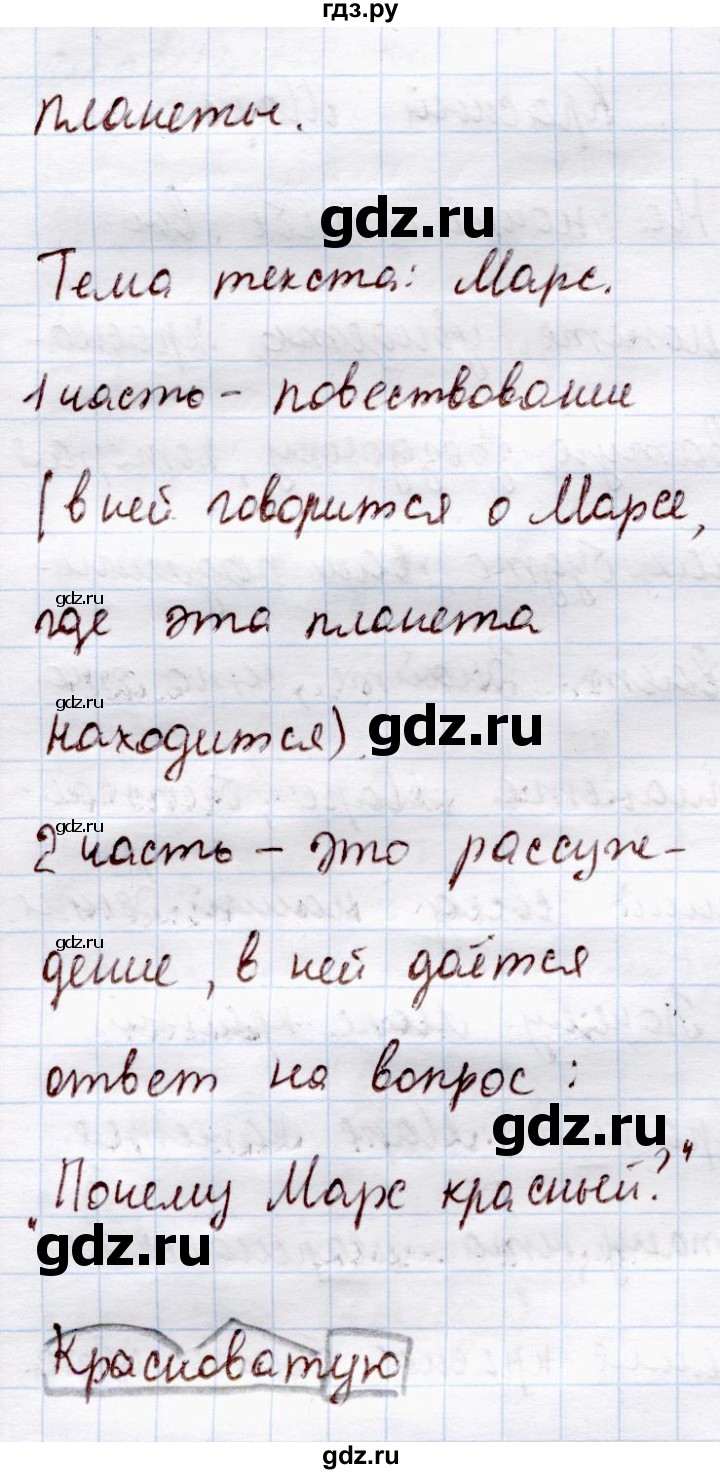 гдз.ру
планеты.
gdz.ru
Тема текста: Марс.
1 часть - повествование
(в ней говорится о Марсе,
gdz.ru
где эта планета
gdz.ru
находится). gdz.ru
gdz.ru
2 часть - это рассуж-
gdz.ru
дение, в ней даётся
ответ на вопрос:
gdz.ru
„Почему Марс красный?"
gdz.ru
Красноватую
gdz.ru